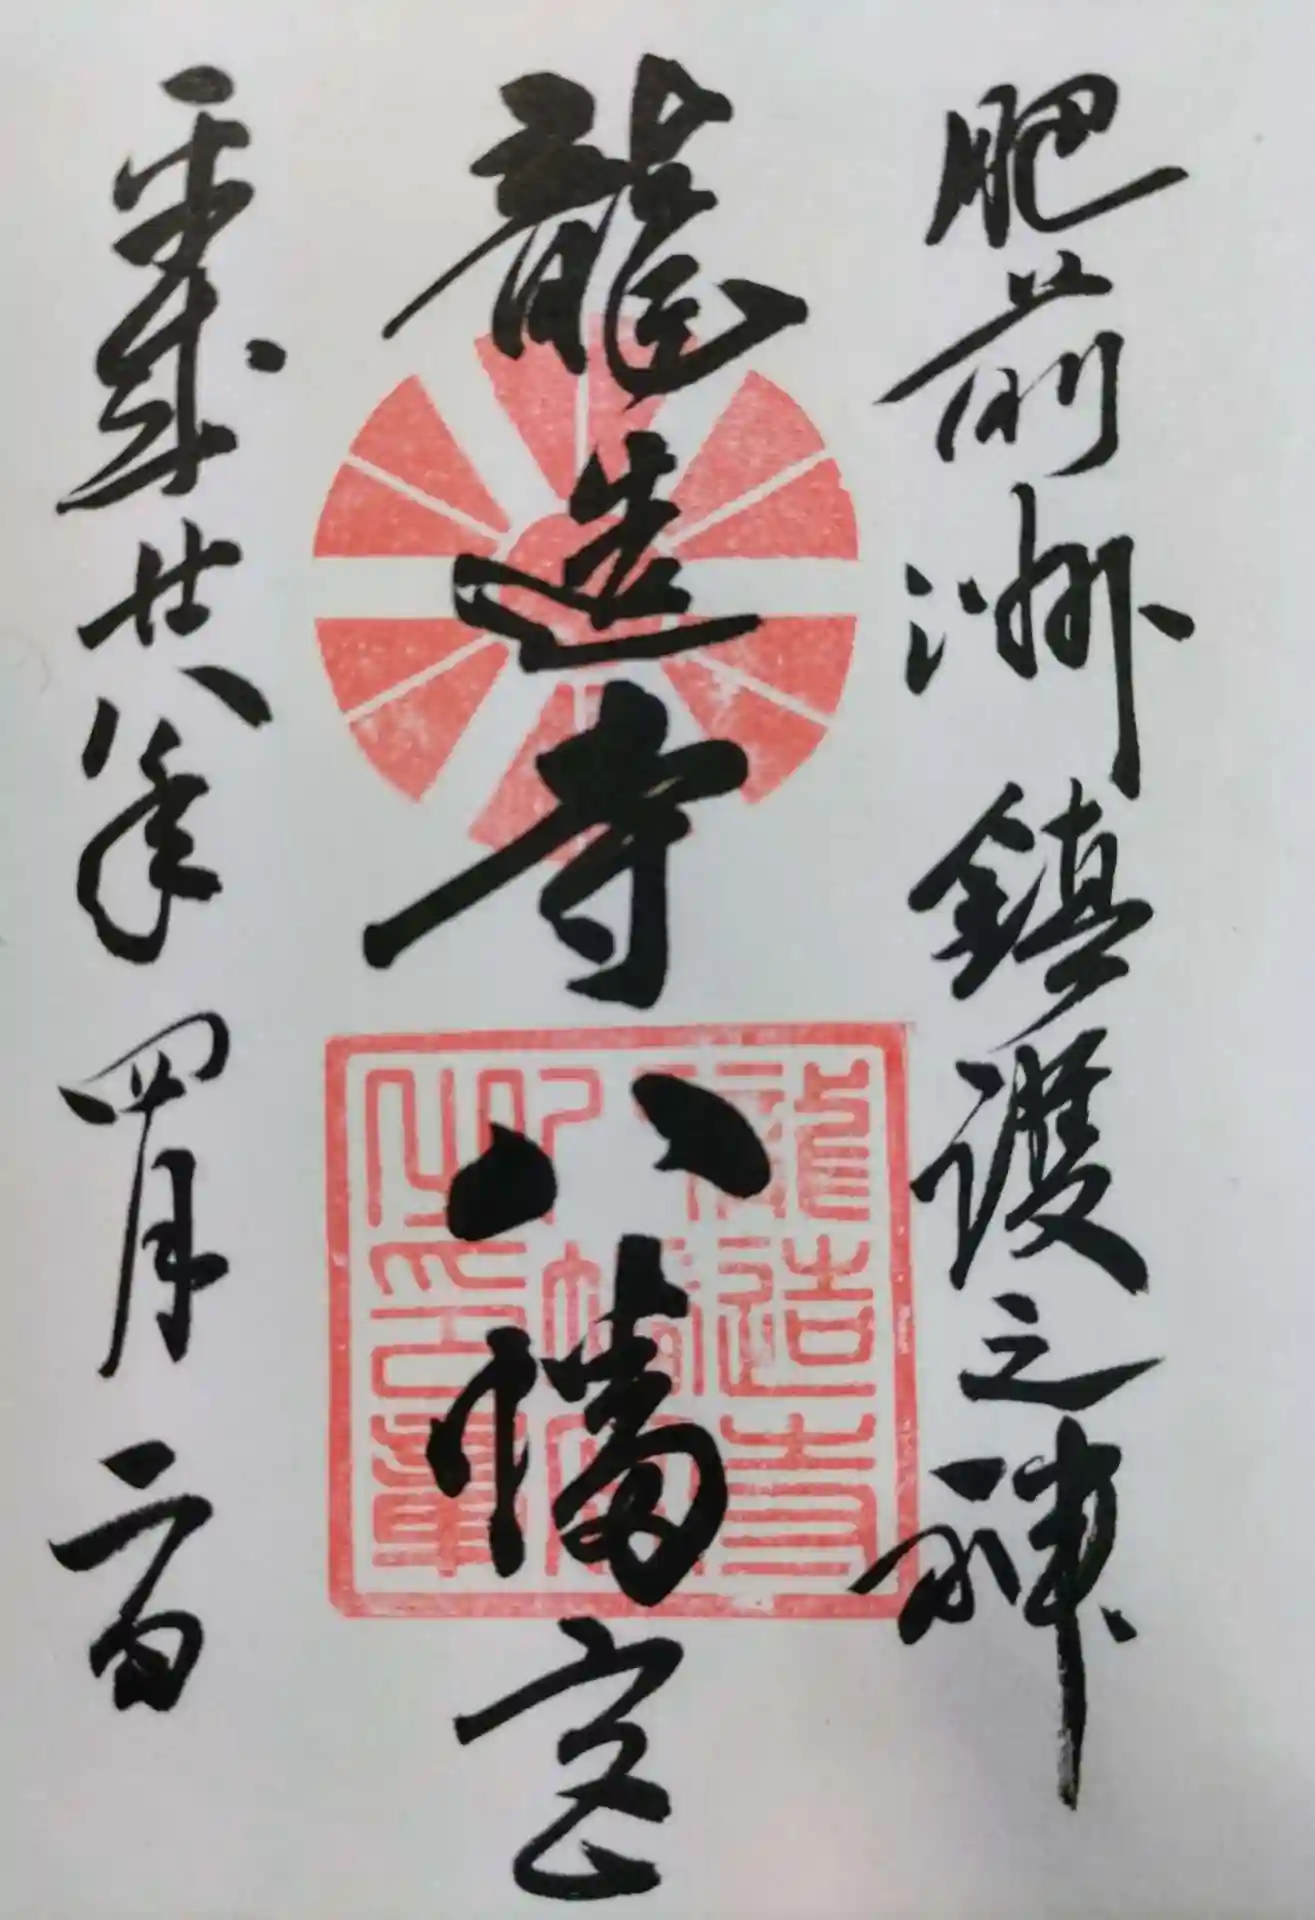 肥前洲鎮護之神
龍造寺八幡宮
龍造寺
八幡宮
之印章
平成廿八年四月二日